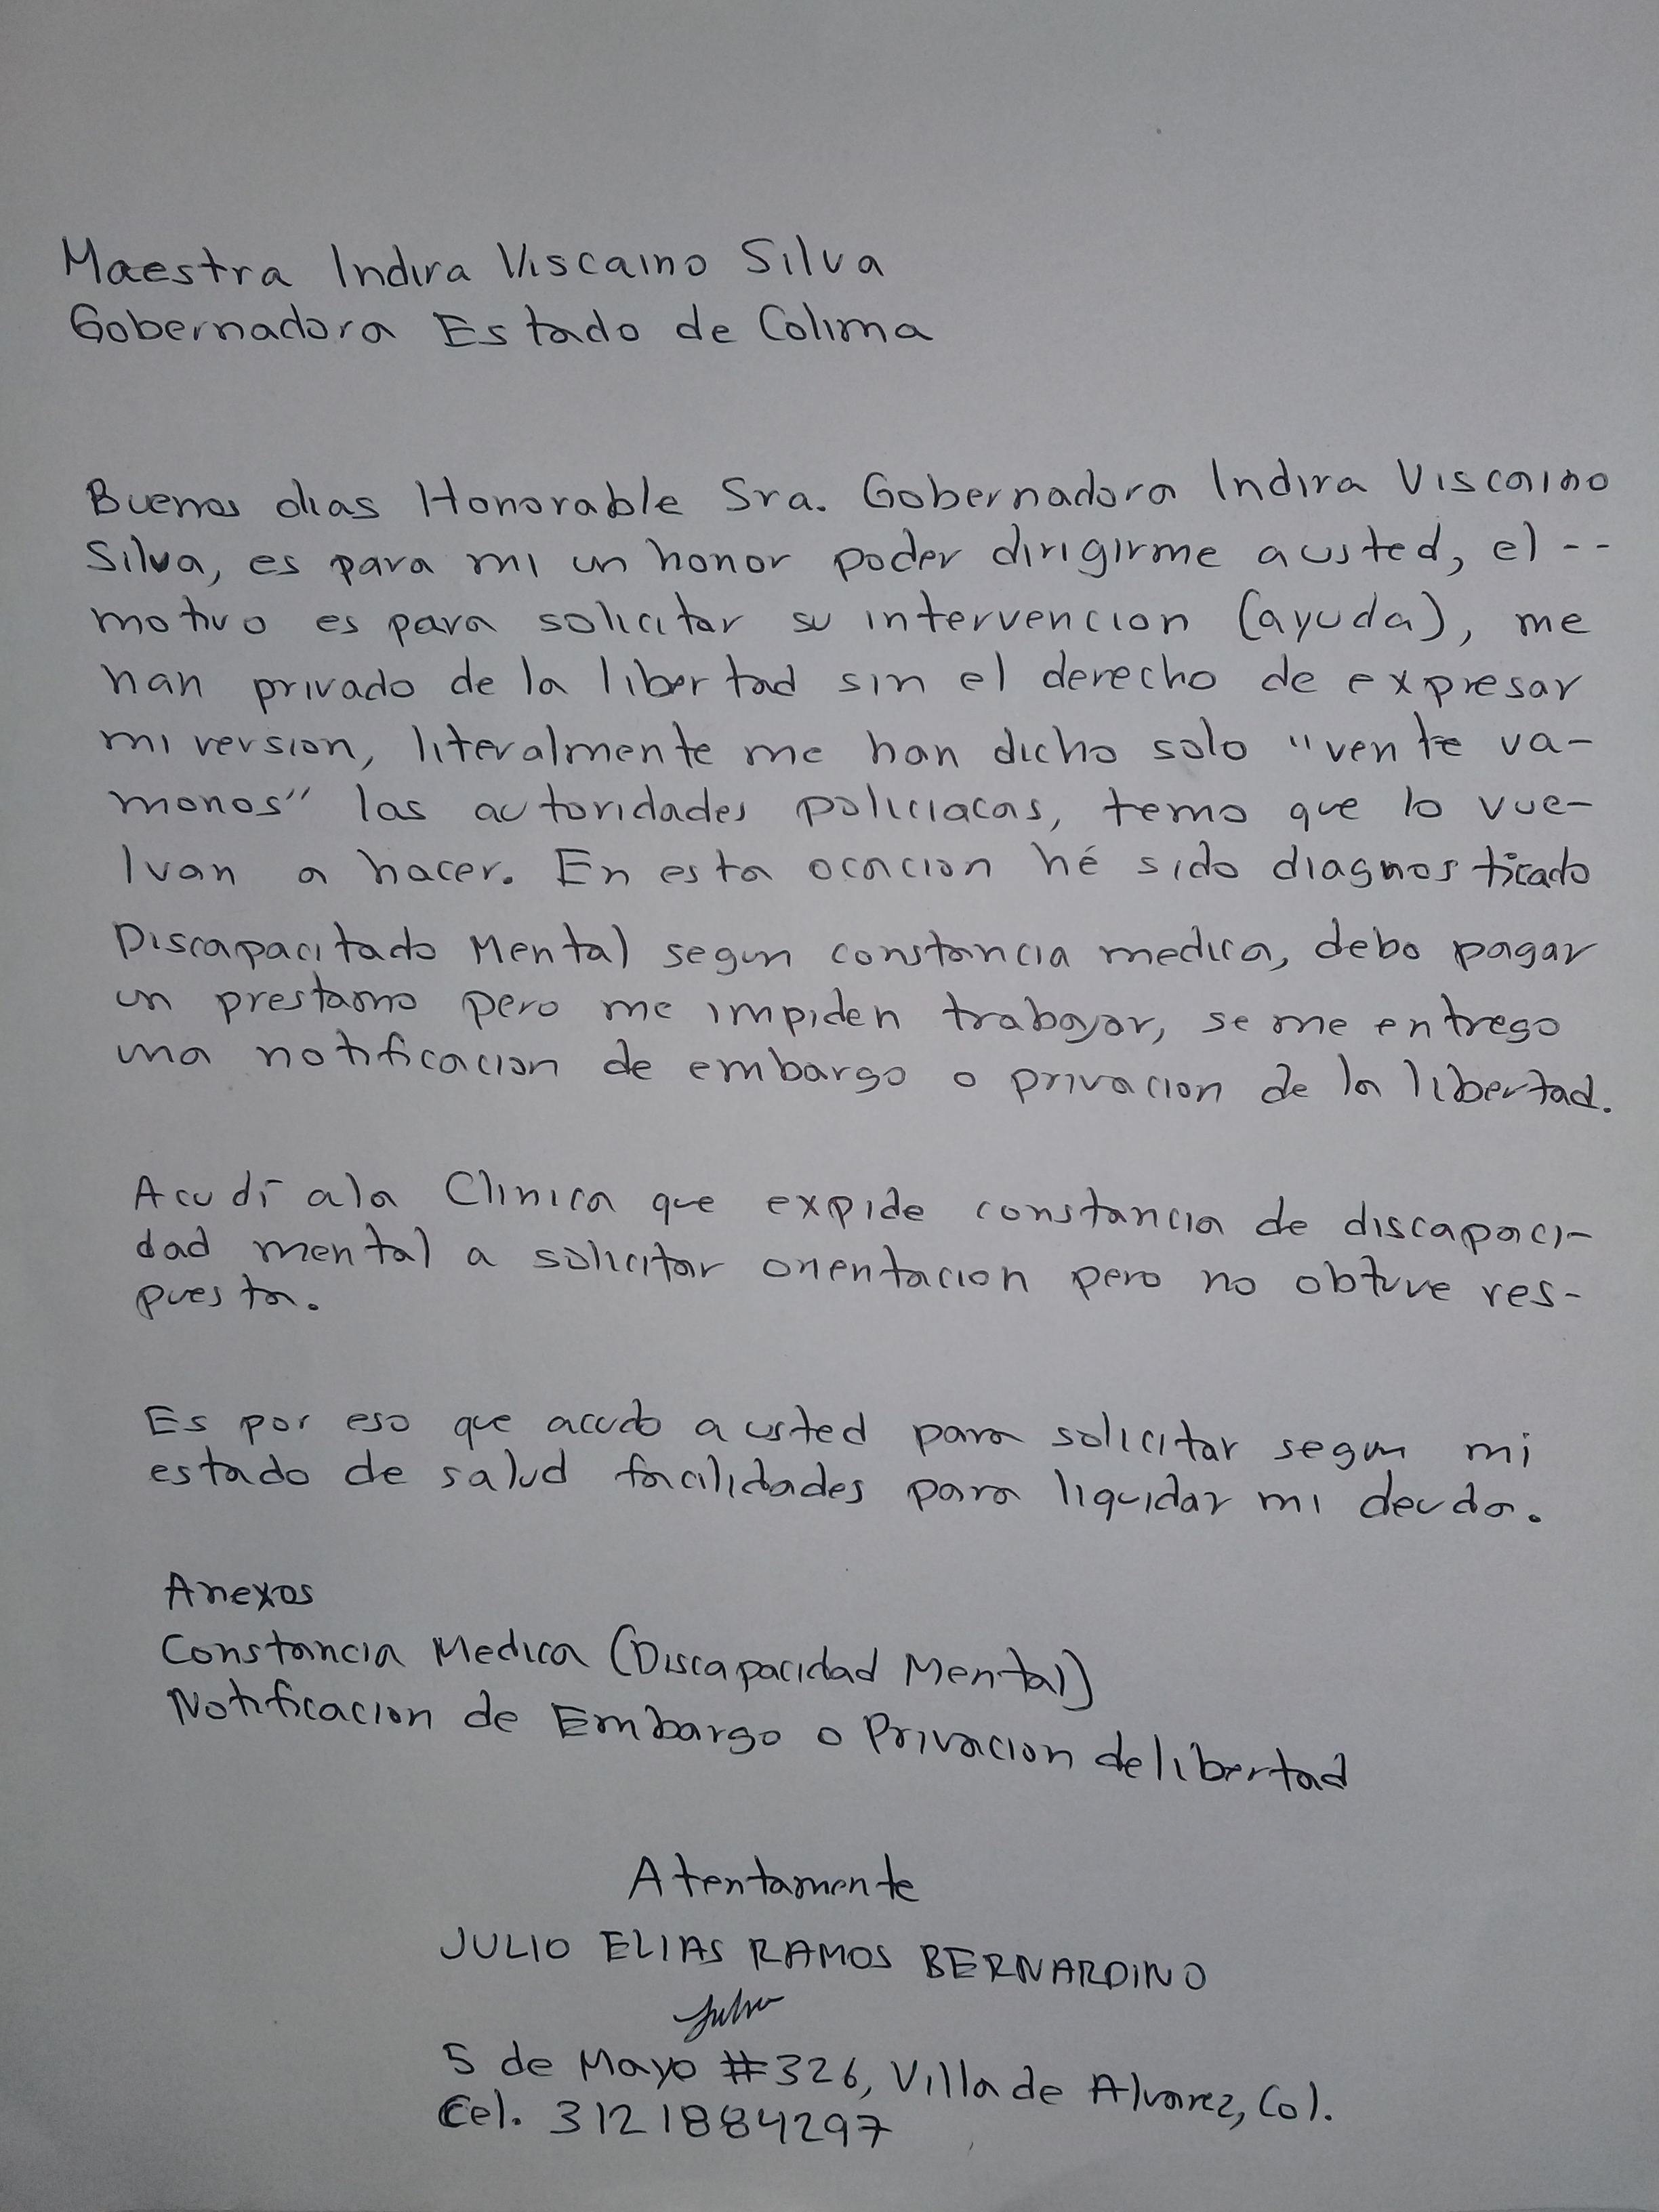 Maestra Indira Viscaino Silva
Gobernadora Estado de Colima
Buenos dias Honorable Sra. Gobernadora Indira Viscaino
Silva, es para mi un honor poder dirigirme a usted, el --
motivo es para solicitar su intervencion (ayuda), me
han privado de la libertad sin el derecho de expresar
mi version, literalmente me han dicho solo "vente va-
monos" las autoridades policiacas, temo que lo vue-
lvan a hacer. En esta ocacion hé sido diagnosticado
Discapacitado Mental segun constancia medica, debo pagar
un prestamo pero me impiden trabajar, se me entrego
una notificacion de embargo o privacion de la libertad.
Acudí a la Clinica que expide constancia de discapaci-
dad mental a solicitar orientacion pero no obtuve res-
puesta.
Es por eso que acudo a usted para solicitar segun mi
estado de salud facilidades para liquidar mi deuda.
Anexos
Constancia Medica (Discapacidad Mental)
Notificacion de Embargo o Privacion de libertad
Atentamente
JULIO ELIAS RAMOS BERNARDINO
Julio
5 de Mayo #326, Villa de Alvarez, Col.
Cel. 3121884297